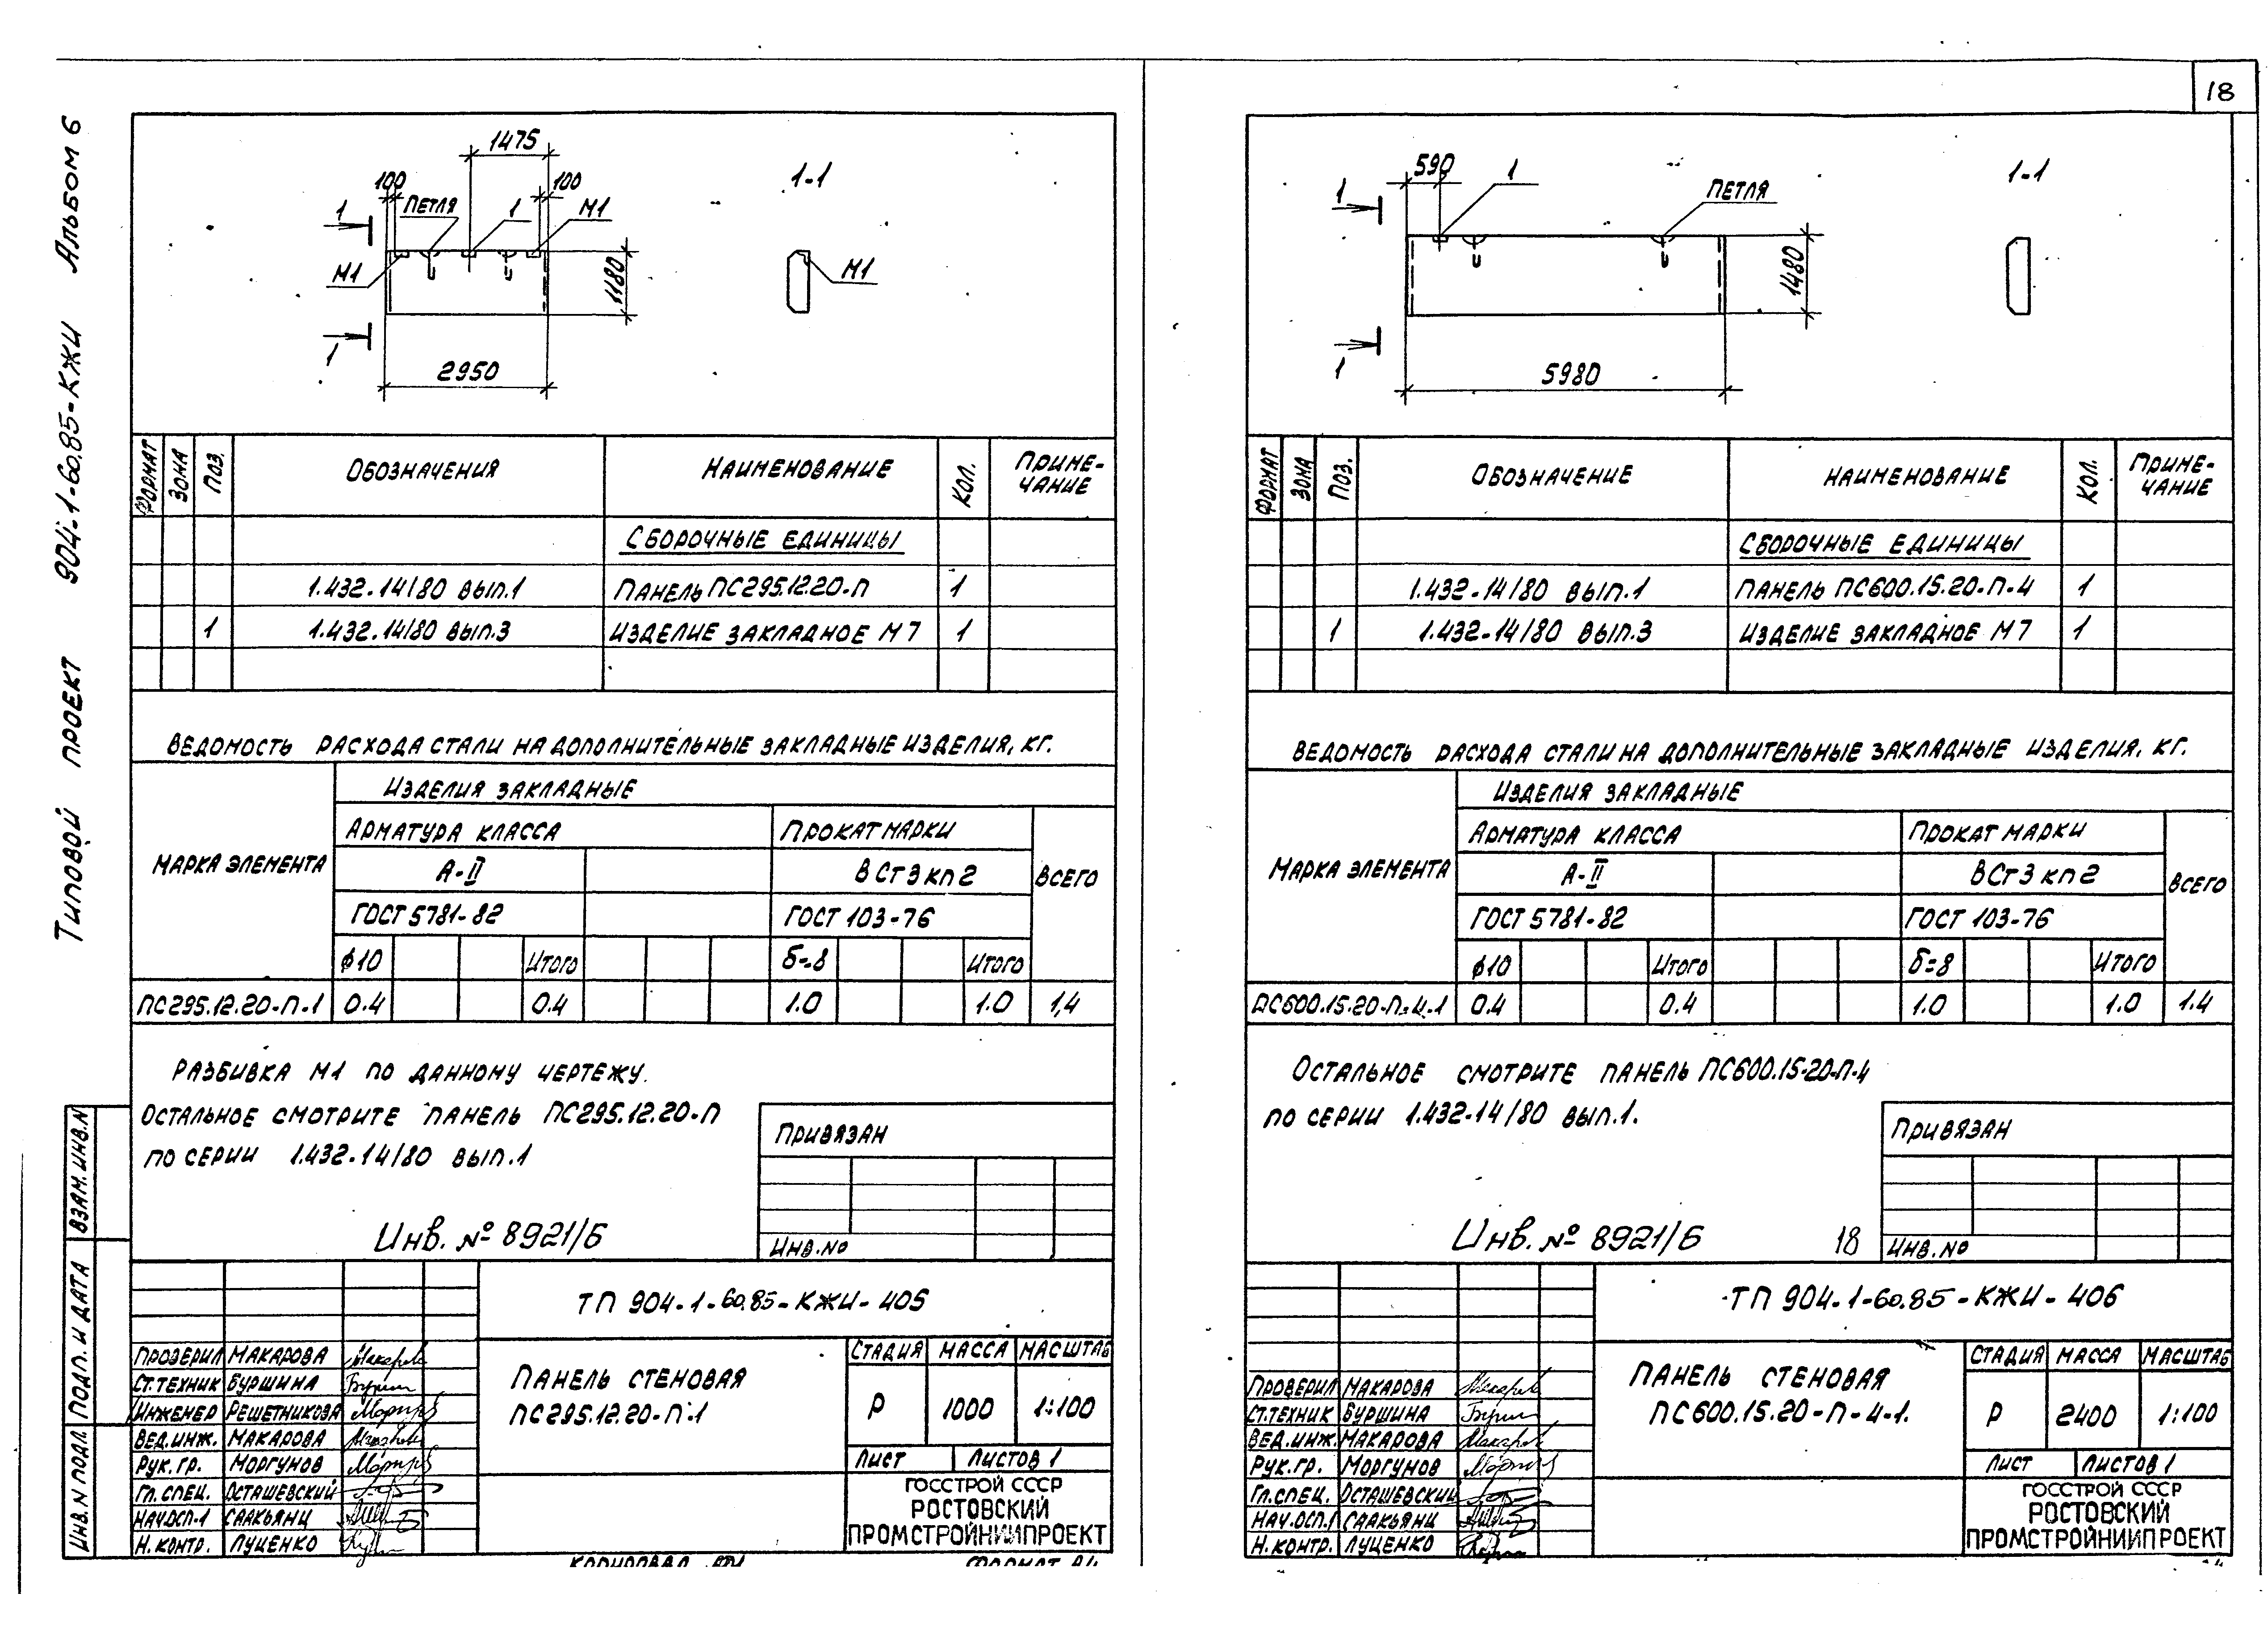 18
Типовой проект 904-1-60.85-КЖИ Альбом 6
1475
100
100
1-1
1
ПЕТЛЯ
1
М1
М1
1180
М1
1
2950
ФОРМАТ ЗОНА ПОЗ. ОБОЗНАЧЕНИЯ НАИМЕНОВАНИЕ КОЛ. ПРИМЕ-
ЧАНИЕ
СБОРОЧНЫЕ ЕДИНИЦЫ
1.432-14/80 ВЫП.1 ПАНЕЛЬ ПС295.12.20-П 1
1 1.432.14/80 ВЫП.3 ИЗДЕЛИЕ ЗАКЛАДНОЕ М7 1
ВЕДОМОСТЬ РАСХОДА СТАЛИ НА ДОПОЛНИТЕЛЬНЫЕ ЗАКЛАДНЫЕ ИЗДЕЛИЯ, КГ.
МАРКА ЭЛЕМЕНТА
ИЗДЕЛИЯ ЗАКЛАДНЫЕ
АРМАТУРА КЛАССА ПРОКАТ МАРКИ
А-II ВСт3кп2 ВСЕГО
ГОСТ 5781-82 ГОСТ 103-76
ϕ10 ИТОГО δ=8 ИТОГО
ПС295.12.20-П-1 0.4 0.4 1.0 1.0 1,4
РАЗБИВКА М1 ПО ДАННОМУ ЧЕРТЕЖУ.
ОСТАЛЬНОЕ СМОТРИТЕ ПАНЕЛЬ ПС295.12.20-П
ПО СЕРИИ 1.432-14/80 ВЫП.1
ПРИВЯЗАН
ИНВ.NO
Инв. № 8921/6
ВЗАМ. ИНВ.N
ПОДП. И ДАТА
ИНВ.N ПОДЛ.
ТП 904-1-60.85-КЖИ-405
ПРОВЕРИЛ МАКАРОВА
СТ.ТЕХНИК БУРШИНА
ИНЖЕНЕР РЕШЕТНИКОВА
ВЕД.ИНЖ. МАКАРОВА
РУК.ГР. МОРГУНОВ
ГЛ.СПЕЦ. ОСТАШЕВСКИЙ
НАЧ.ОСП-1 СААКЬЯНЦ
Н.КОНТР. ЛУЦЕНКО
ПАНЕЛЬ СТЕНОВАЯ
ПС295.12.20-П-1
СТАДИЯ МАССА МАСШТАБ
Р 1000 1:100
ЛИСТ ЛИСТОВ 1
ГОССТРОЙ СССР
РОСТОВСКИЙ
ПРОМСТРОЙНИИПРОЕКТ
КОПИРОВАЛ ФОРМАТ А4
590
1
1
ПЕТЛЯ
1-1
1480
1
5980
ФОРМАТ ЗОНА ПОЗ. ОБОЗНАЧЕНИЕ НАИМЕНОВАНИЕ КОЛ. ПРИМЕ-
ЧАНИЕ
СБОРОЧНЫЕ ЕДИНИЦЫ
1.432-14/80 ВЫП.1 ПАНЕЛЬ ПС600.15.20-П-4 1
1 1.432-14/80 ВЫП.3 ИЗДЕЛИЕ ЗАКЛАДНОЕ М7 1
ВЕДОМОСТЬ РАСХОДА СТАЛИ НА ДОПОЛНИТЕЛЬНЫЕ ЗАКЛАДНЫЕ ИЗДЕЛИЯ, КГ.
МАРКА ЭЛЕМЕНТА
ИЗДЕЛИЯ ЗАКЛАДНЫЕ
АРМАТУРА КЛАССА ПРОКАТ МАРКИ
А-II ВСт3кп2 ВСЕГО
ГОСТ 5781-82 ГОСТ 103-76
ϕ10 ИТОГО δ=8 ИТОГО
ПС600.15.20-П-4-1 0.4 0.4 1.0 1.0 1.4
ОСТАЛЬНОЕ СМОТРИТЕ ПАНЕЛЬ ПС600.15-20-П-4
ПО СЕРИИ 1.432-14/80 ВЫП.1.
ПРИВЯЗАН
ИНВ.NO
Инв. № 8921/6 18
ТП 904-1-60.85-КЖИ-406
ПРОВЕРИЛ МАКАРОВА
СТ.ТЕХНИК БУРШИНА
ВЕД.ИНЖ. МАКАРОВА
РУК.ГР. МОРГУНОВ
ГЛ.СПЕЦ. ОСТАШЕВСКИЙ
НАЧ.ОСП.1 СААКЬЯНЦ
Н.КОНТР. ЛУЦЕНКО
ПАНЕЛЬ СТЕНОВАЯ
ПС600.15.20-П-4-1.
СТАДИЯ МАССА МАСШТАБ
Р 2400 1:100
ЛИСТ ЛИСТОВ 1
ГОССТРОЙ СССР
РОСТОВСКИЙ
ПРОМСТРОЙНИИПРОЕКТ